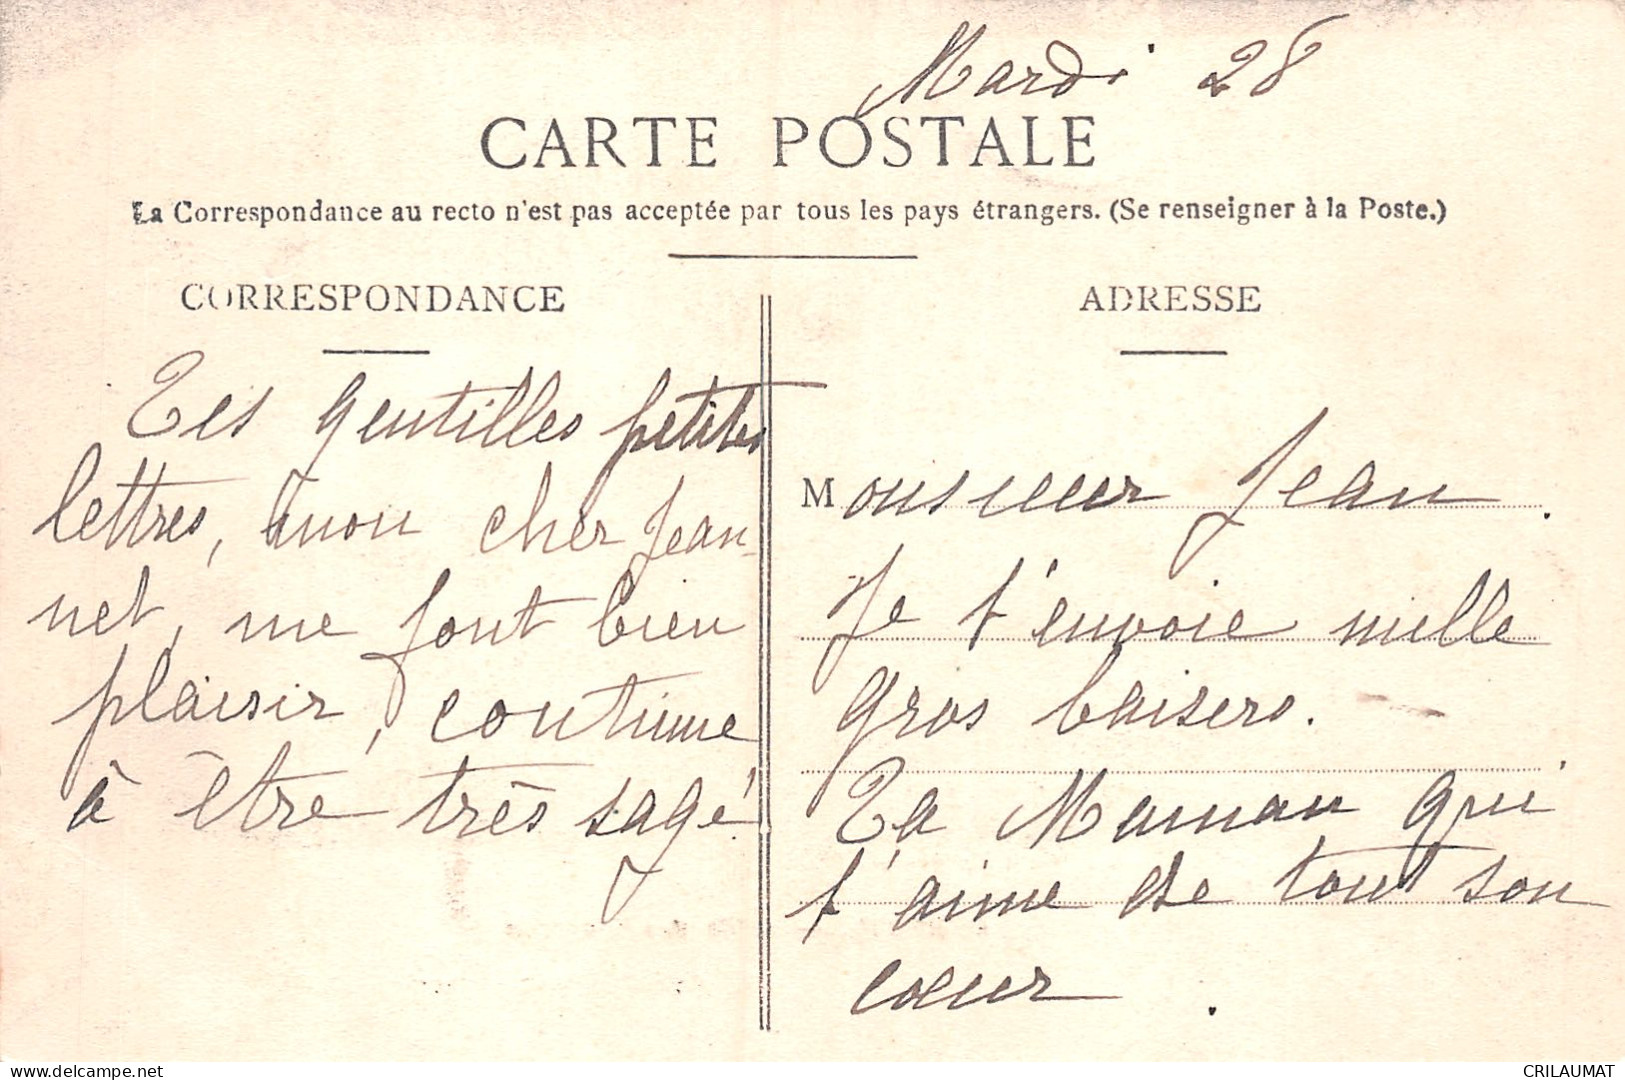 Mardi 28
CARTE POSTALE
La Correspondance au recto n'est pas acceptée par tous les pays étrangers. (Se renseigner à la Poste.)
CORRESPONDANCE
Tes gentilles petites
lettres, mon cher Jean-
net, me font bien
plaisir, continue
à être très sage
ADRESSE
Monsieur Jean.
Je t'envoie mille
gros baisers.
Ta Maman qui
t'aime de tout son
cœur.
delcampe.net
CRILAUMAT